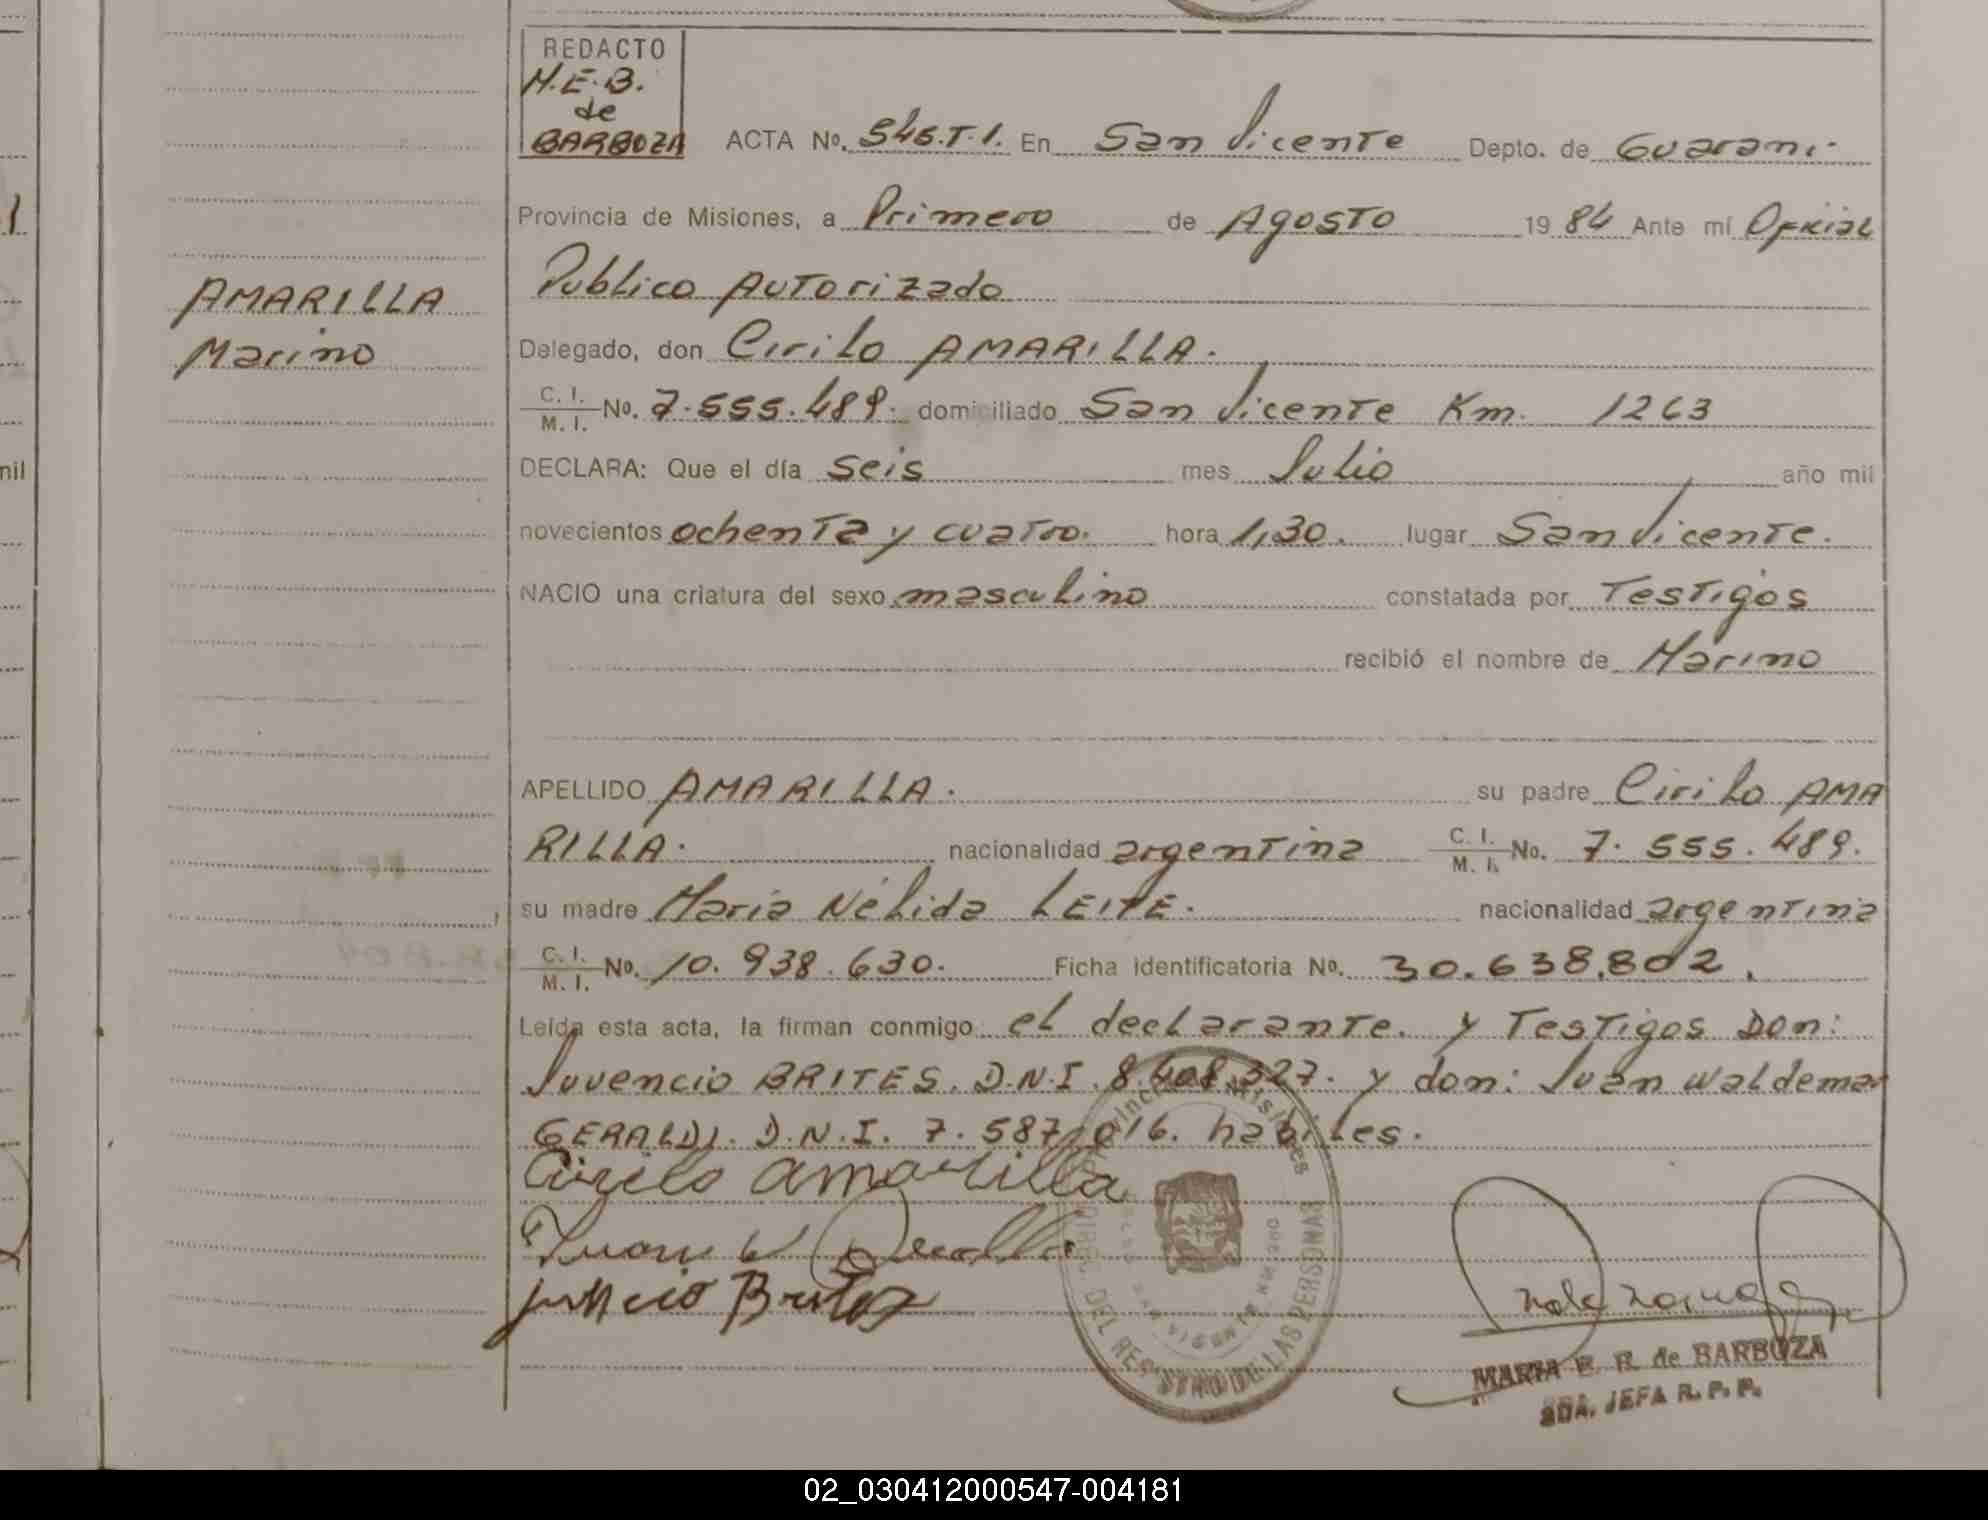 REDACTO
M.E.B.
de
BARBOZA
ACTA No. 545.T.1. En San Vicente Depto. de Guarani.
Provincia de Misiones, a Primero de Agosto 1984 Ante mí Oficial
Publico Autorizado
AMARILLA
Marino
Delegado, don Cirilo AMARILLA.
C. I. / M. I. No. 7.555.489. domiciliado San Vicente Km. 1263
DECLARA: Que el día seis mes Julio año mil
novecientos ochenta y cuatro. hora 1,30. lugar San Vicente.
NACIO una criatura del sexo masculino constatada por Testigos
recibió el nombre de Marino
APELLIDO AMARILLA. su padre Cirilo AMA
RILLA. nacionalidad argentina C. I. / M. I. No. 7.555.489.
su madre María Nélida LEITE. nacionalidad argentina
C. I. / M. I. No. 10.938.630. Ficha Identificatoria No. 30.638.802.
Leída esta acta, la firman conmigo el declarante. y Testigos Don:
Juvencio BRITES. D.N.I. 8.408.327. y don: Juan Waldemar
GERALDI. D.N.I. 7.587.016. habiles.
Cirilo Amarilla
Juan W
Brites
Provincia de Misiones
DIREC. DEL REGISTRO DE LAS PERSONAS
MARIA E. R. de BARBOZA
2DA. JEFA R. P. P.
nil
02_030412000547-004181